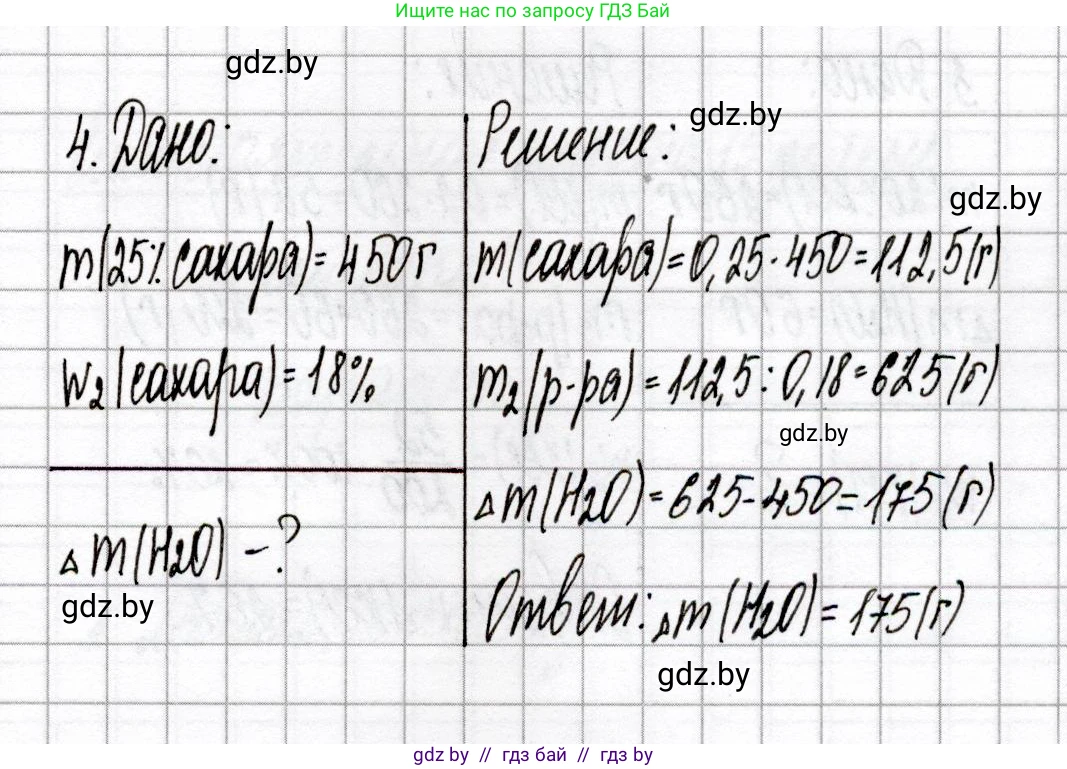 Ищите нас по запросу ГДЗ Бай
gdz.by
4. Дано:
m(25% сахара)= 450г
w2(сахара)= 18%
Δm(H2O) –?
gdz.by
Решение:
gdz.by
gdz.by
m(сахара)= 0,25·450=112,5(г)
m2(р-ра) = 112,5 : 0,18=625(г)
gdz.by
Δm(H2O)= 625-450=175(г)
Ответ: Δm(H2O)= 175(г)
gdz.by
gdz by // гдз бай // гдз by